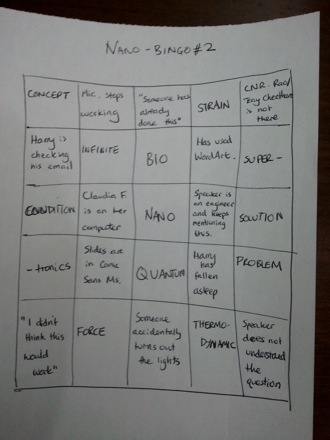 NANO - BINGO #2
CONCEPT
Mic. stops
working
"Someone has
already
done this"
STRAIN
CNR. Rao/
Tony Cheetham
is not
there
Harry is
checking
his email
INFINITE
BIO
Has used
WordArt.
SUPER -
CONDITION
Claudia F.
is on her
computer
NANO
Speaker is
an engineer
and keeps
mentioning
this.
SOLUTION
- tronics
Slides are
in Comic
Sans Ms.
QUANTUM
Harry
has
fallen
asleep
PROBLEM
"I didn't
think this
would
work"
FORCE
Someone
accidentally
turns out
the lights
THERMO-
DYNAMIC
Speaker
does not
understand
the
question